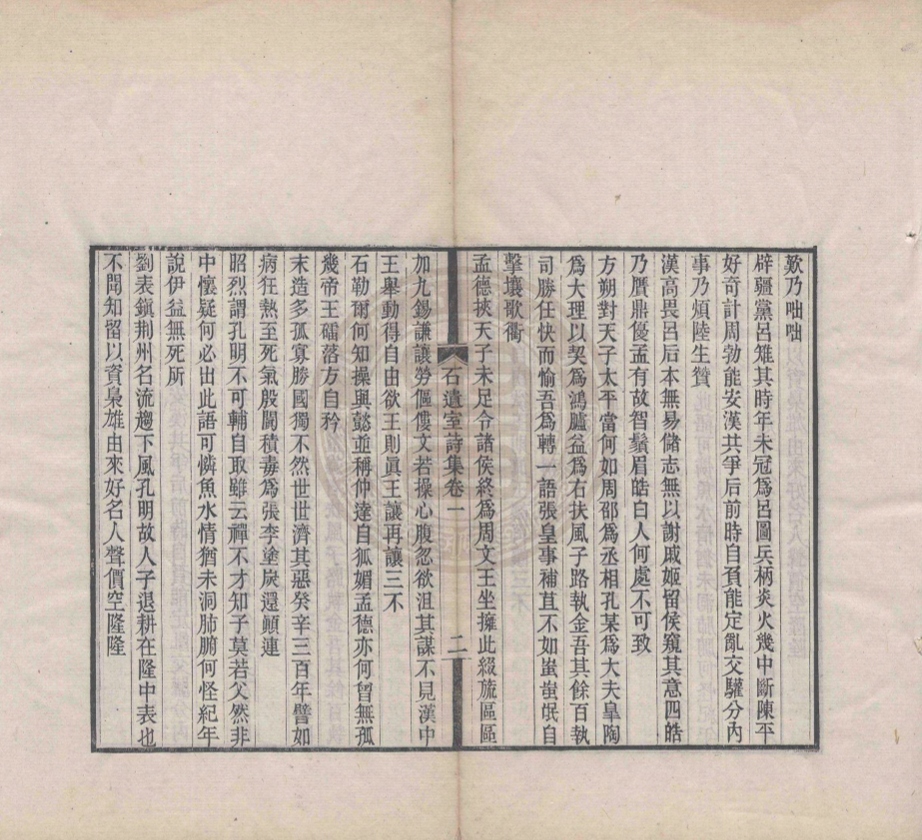 歎乃咄咄
辟疆黨呂雉其時年未冠爲呂圖兵柄炎火幾中斷陳平
好奇計周勃能安漢共爭后前時自負能定亂交驩分內
事乃煩陸生贊
漢高畏呂后本無易儲志無以謝戚姬留侯窺其意四皓
乃贋鼎優孟有故智鬚眉皓白人何處不可致
方朔對天子太平當何如周邵爲丞相孔某爲大夫皐陶
爲大理以契爲鴻臚益爲右扶風子路執金吾其餘百執
司勝任快而愉吾爲轉一語張皇事補苴不如蚩蚩氓自
擊壤歌衢
孟德挾天子未足令諸侯終爲周文王坐擁此綴旒區區
石遺室詩集卷一
二
加九錫謙讓勞傴僂文若操心腹忽欲沮其謀不見漢中
王舉動得自由欲王則眞王讓再讓三不
石勒爾何知操與懿並稱仲達自狐媚孟德亦何曾無孤
幾帝王磊落方自矜
末造多孤寡勝國獨不然世世濟其惡癸辛三百年譬如
病狂熱至死氣般闘積毒爲張李塗炭還顛連
昭烈謂孔明不可輔自取雖云禪不才知子莫若父然非
中懷疑何必出此語可憐魚水情猶未洞肺腑何怪紀年
說伊益無死所
劉表鎭荆州名流趨下風孔明故人子退耕在隆中表也
不聞知留以資梟雄由來好名人聲價空隆隆